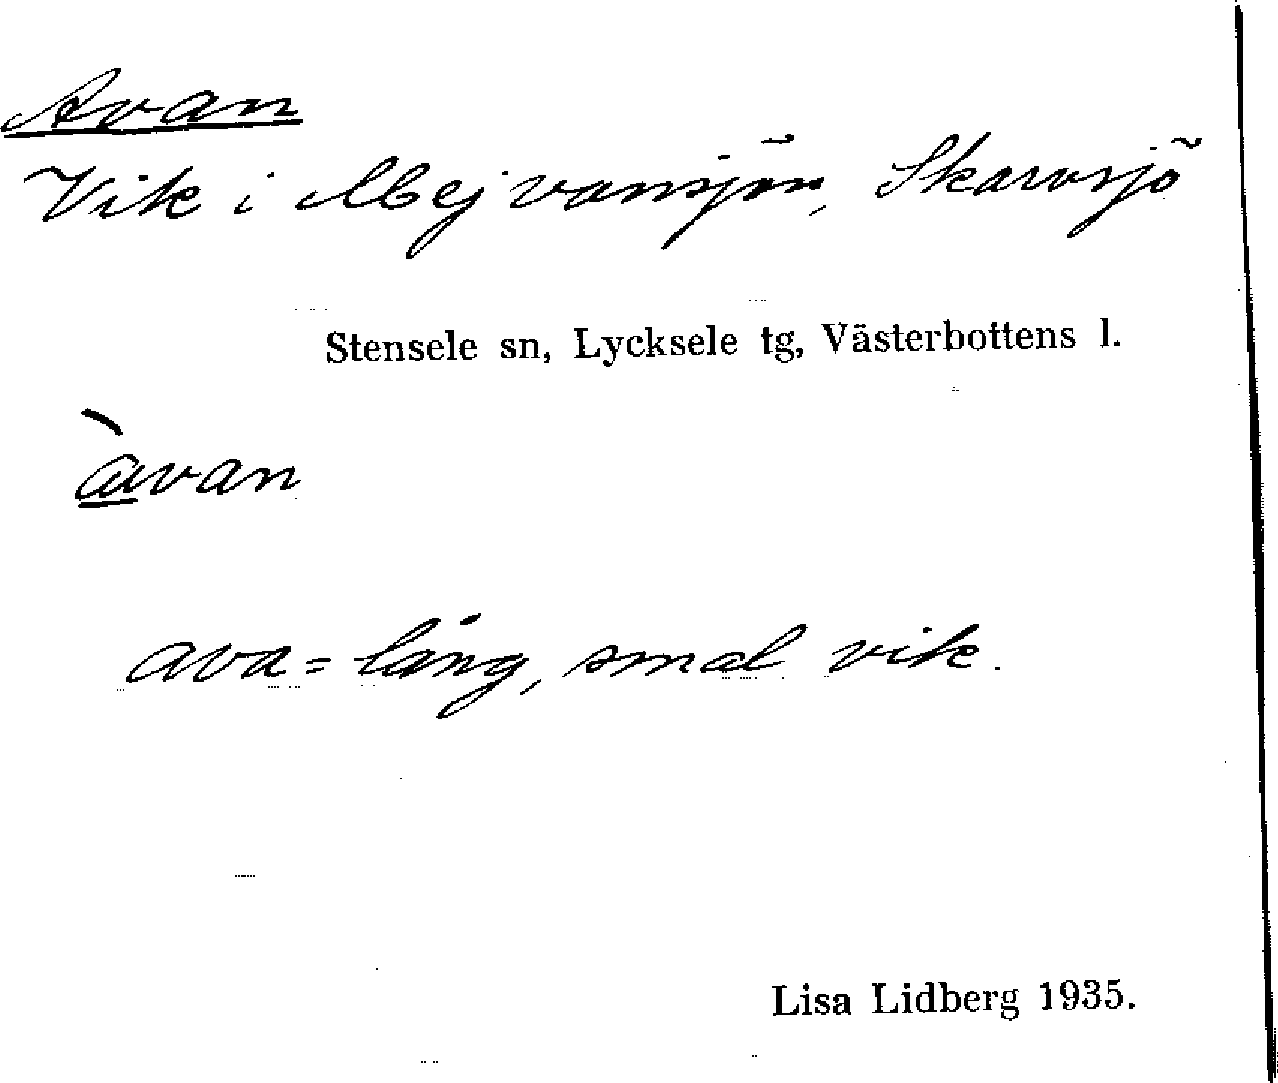 Avan
Vik i Mejvansjön, Skarvsjö
Stensele sn, Lycksele tg, Västerbottens l.
àvan
ava = lång, smal vik.
Lisa Lidberg 1935.